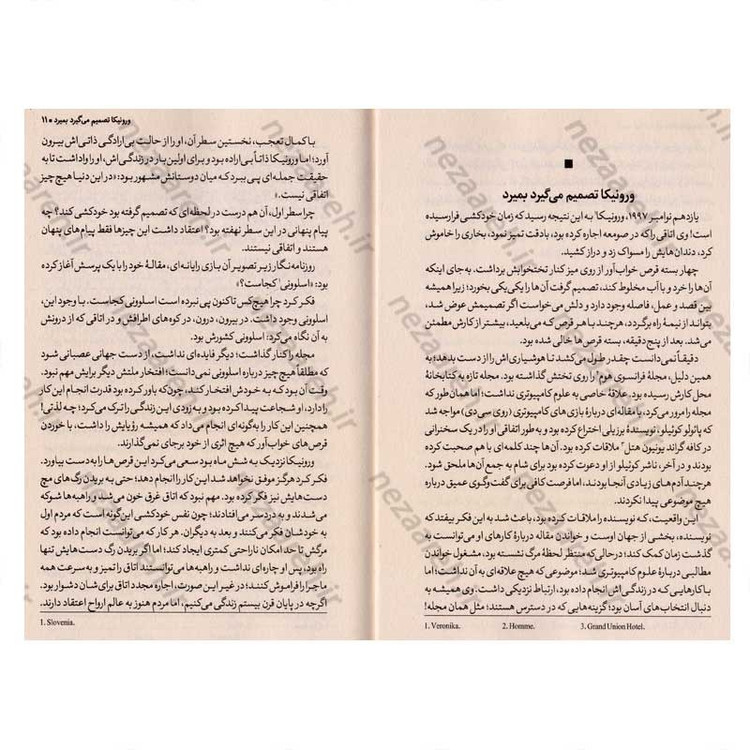 ■
ورونیکا تصمیم می‌گیرد بمیرد
یازدهم نوامبر ۱۹۹۷، ورونیکا¹ به این نتیجه رسید که زمان خودکشی فرارسیده
است! وی اتاقی را که در صومعه اجاره کرده بود، با دقت تمیز نمود، بخاری را خاموش
کرد، دندان‌هایش را مسواک زد و دراز کشید.
چهار بسته قرص خواب‌آور از روی میز کنار تختخوابش برداشت. به‌جای اینکه
آن‌ها را خرد و با آب مخلوط کند، تصمیم گرفت آن‌ها را یکی‌یکی بخورد؛ زیرا همیشه
بین قصد و عمل، فاصله وجود دارد و دلش می‌خواست اگر تصمیمش عوض شد،
بتواند از نیمهٔ راه برگردد. هرچند با هر قرص که می‌بلعید، بیشتر از کارش مطمئن
می‌شد. بعد از پنج دقیقه، بسته قرص‌ها خالی شده بود.
دقیقاً نمی‌دانست چقدر طول می‌کشد تا هوشیاری‌اش را از دست بدهد؛ به
همین دلیل، مجلهٔ فرانسوی هوم² را روی تختش گذاشته بود. مجله تازه به کتابخانهٔ
محل کارش رسیده بود. علاقهٔ خاصی به علوم کامپیوتری نداشت؛ اما همان‌طور که
مجله را مرور می‌کرد، با مقاله‌ای دربارهٔ بازی‌های کامپیوتری (روی سی‌دی) مواجه شد
که پائولو کوئیلو، نویسندهٔ برزیلی اختراع کرده بود و به‌طور اتفاقی او را در یک سخنرانی
در کافه گراند یونیون هتل³ ملاقات کرده بود. آن‌ها چند کلمه‌ای با هم صحبت کرده
بودند و در آخر، ناشر کوئیلو از او دعوت کرده بود برای شام به جمع آن‌ها ملحق شود.
هرچند آدم‌های زیادی آنجا بودند، اما فرصت کافی برای گفت‌وگوی عمیق درباره
هیچ موضوعی پیدا نکردند.
این واقعیت، که نویسنده را ملاقات کرده بود، باعث شد به این فکر بیفتد که
نویسنده، بخشی از جهان اوست و خواندن مقاله دربارهٔ کارهای او می‌توانست به
گذشت زمان کمک کند؛ درحالی‌که منتظر لحظهٔ مرگ نشسته بود، مشغول خواندن
مطالبی دربارهٔ علوم کامپیوتری شد؛ موضوعی که هیچ علاقه‌ای به آن نداشت؛ اما
با کارهایی که در زندگی‌اش انجام داده بود، ارتباط نزدیکی داشت. وی همیشه به
دنبال انتخاب‌های آسان بود؛ گزینه‌هایی که در دسترس هستند؛ مثل همان مجله!
1. Veronika. 2. Homme. 3. Grand Union Hotel.
ورونیکا تصمیم می‌گیرد بمیرد ■ ۱۱
با کمال تعجب، نخستین سطر آن، او را از حالت بی‌ارادگی ذاتی‌اش بیرون
آورد؛ اما ورونیکا ذاتاً بی‌اراده بود و برای اولین بار در زندگی‌اش، او را واداشت تا به
حقیقت جمله‌ای پی ببرد که میان دوستانش مشهور بود: «در این دنیا هیچ چیز
اتفاقی نیست.»
چرا سطر اول، آن هم درست در لحظه‌ای که تصمیم گرفته بود خودکشی کند؟ چه
پیام پنهانی در این سطر نهفته بود؟ اعتقاد داشت این چیزها فقط پیام‌های پنهان
هستند و اتفاقی نیستند.
روزنامه‌نگار زیر تصویر آن بازی رایانه‌ای، مقالهٔ خود را با یک پرسش آغاز کرده
بود: «اسلوونی¹ کجاست؟»
فکر کرد چرا هیچ‌کس تاکنون پی نبرده است اسلوونی کجاست. با وجود این،
اسلوونی وجود داشت. در بیرون، درون، در کوه‌های اطرافش و در اتاقی که از درونش
به آن نگاه می‌کرد: اسلوونی کشورش بود.
مجله را کنار گذاشت؛ دیگر فایده‌ای نداشت، از دست جهانی عصبانی شود
که مطلقاً هیچ چیز درباره اسلوونی نمی‌دانست؛ افتخار ملتش دیگر برایش مهم نبود.
وقت آن بود که به خودش افتخار کند، چون‌که باور کرده بود قدرت انجام این کار
را دارد، او شجاعت پیدا کرده بود و به زودی این زندگی را ترک می‌کرد؛ چه لذتی!
همچنین این کار را به‌گونه‌ای انجام می‌داد که همیشه رؤیایش را داشت، با خوردن
قرص‌های خواب‌آور که هیچ اثری از خود برجای نمی‌گذارند.
ورونیکا نزدیک به شش ماه بود سعی می‌کرد این قرص‌ها را به دست بیاورد.
فکر کرد هرگز موفق نخواهد شد این کار را انجام دهد؛ حتی به بریدن رگ‌های مچ
دست‌هایش نیز فکر کرده بود. مهم نبود که اتاق غرق خون می‌شد و راهبه‌ها شوکه
می‌شدند و به دردسر می‌افتادند؛ چون نفس خودکشی این‌گونه است که مردم اول
به خودشان فکر می‌کنند و بعد به دیگران. هر کار که می‌توانست انجام داده بود که
مرگش تا حد امکان ناراحتی کمتری ایجاد کند؛ اما اگر بریدن رگ دست‌هایش تنها
راه بود، پس او چاره‌ای نداشت و راهبه‌ها می‌توانستند اتاق را تمیز و به‌سرعت همه
ماجرا را فراموش کنند؛ در غیر این صورت، اجاره مجدد اتاق برای‌شان دشوار بود.
اگرچه در پایان قرن بیستم زندگی می‌کنیم، اما مردم هنوز به عالم ارواح اعتقاد دارند.
1. Slovenia.
nezaareh.ir